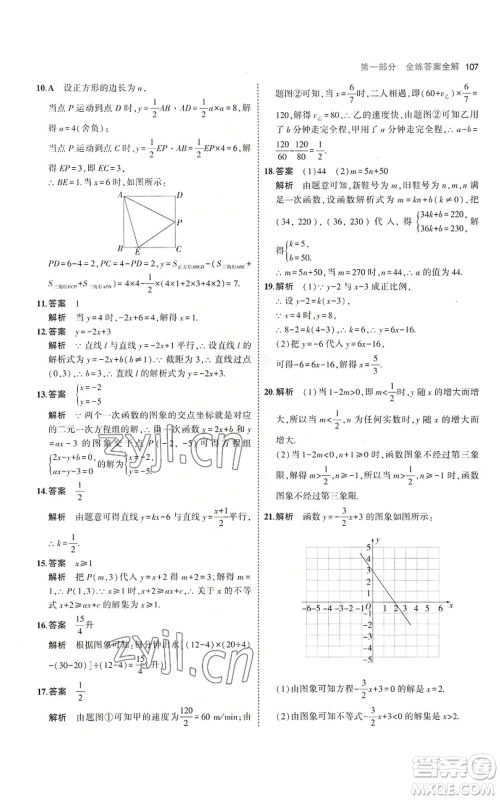 第一部分 全练答案全解 107
10.A 设正方形的边长为a,
当点P运动到点D时,y=1/2 AB·AD=1/2 a×a=8,解
得a=4(舍负);
当点P运动到点C时,y=1/2 EP·AB=1/2 EP×4=6,解
得EP=3,即EC=3,
∴BE=1.当x=6时,如图所示:
A
P
B E C
PD=6-4=2,PC=4-PD=2,∴S
11.答案 1
解析 当y=4时,-2x+6=4,解得x=1.
12.答案 y=-2x+3
解析 ∵直线l与直线y=-2x平行,∴设直线l的
解析式为y=-2x+b(b≠0).∵截距为3,∴直线l过点
(0,3),∴b=3,∴直线l的解析式为y=-2x+3.
13.答案 {x=-2 y=-5
解析 ∵两个一次函数的图象的交点坐标就是对应
的二元一次方程组的解,∴一次函数y=2x+b与y=
ax-3的图象交于点P(-2,-5)可得方程组
{2x-y+b=0, ax-y-3=0 的解为{x=-2, y=-5.
14.答案 1/2
解析 由题意可得直线y=kx-6与直线y=(x+1)/2平行,
∴k=1/2.
15.答案 x≥1
解析 把P(m,3)代入y=x+2得m+2=3,解得m=
1,∴P(1,3).∵x≥1时,x+2≥ax+c,∴关于x的不
等式x+2≥ax+c的解集为x≥1.
16.答案 15/4升
解析 根据图象可知,每分钟出水[(12-4)×(20÷4)
-(30-20)]÷(12-4)=15/4(升).
17.答案 1/2
解析 由题图①可知甲的速度为120/2=60 m/min;由
题图②可知,当x=6/7时,y=0,此时(60+v乙)×6/7=
120,解得v乙=80,∴乙的速度快,∴乙用b分钟走完
全程,甲用a分钟走完全程,∴a-b=
120/60-120/80=1/2.
18.答案 (1)44 (2)m=5n+50
解析 由题意可知,新鞋号为m,旧鞋号为n,m,n满
足一次函数,设函数解析式为m=kn+b(k≠0),把
(34,220),(36,230)代入,得{34k+b=220, 36k+b=230,解
得{k=5, b=50.
∴m=5n+50,当m=270时,n=44.
19.解析 (1)∵y-2与x-3成正比例,
∴设y-2=k(x-3).
∵x=4时,y=8,
∴8-2=k(4-3),∴k=6,∴y=6x-16.
(2)把y=-6代入y=6x-16,得-6=6x-16,
可得x=5/3.
20.解析 (1)当1-2m>0时,y随x的增大而增大,
所以当m<1/2时,y随x的增大
而增大.
(2)当1-2m<0,m+1≥0时,函数图象不经过第三象
限.解得m>1/2,所以当m>1/2时,函数
图象不经过第三象限.
21.解析 函数y=-3/2 x+3的图象如图所示:
y
5
4
3
2
1
-6-5-4-3-2-1 O 1 2 3 4 5 6 x
-1
-2
-3
-4
-5
(1)由图象可知方程-3/2 x+3=0的解为x=2.
(2)由图象可知不等式-3/2 x+3<0的解集为x>2.
zyjl.cn
zyjl.cn